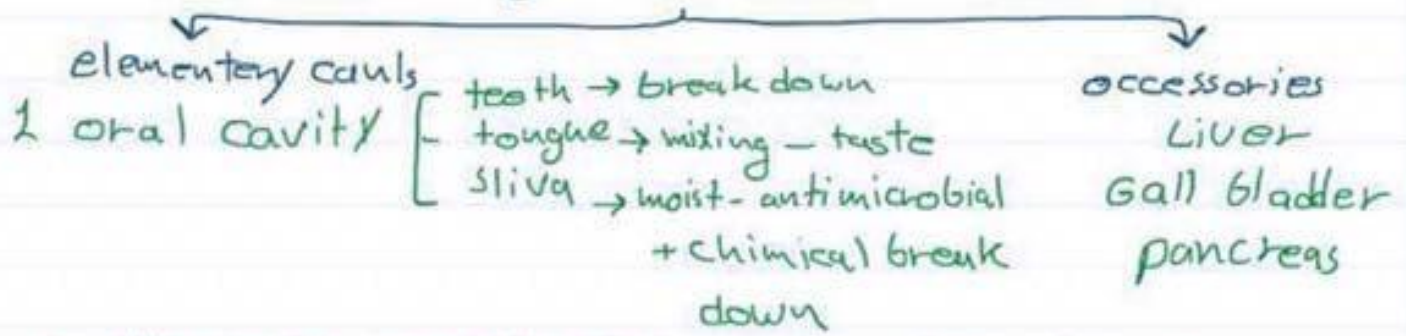 elementery cauls
occessories
1 oral cavity
teeth → break down
tongue → mixing – taste
Sliva → moist - antimicrobial
+ chimical break
down
Liver
Gall bladder
pancreas